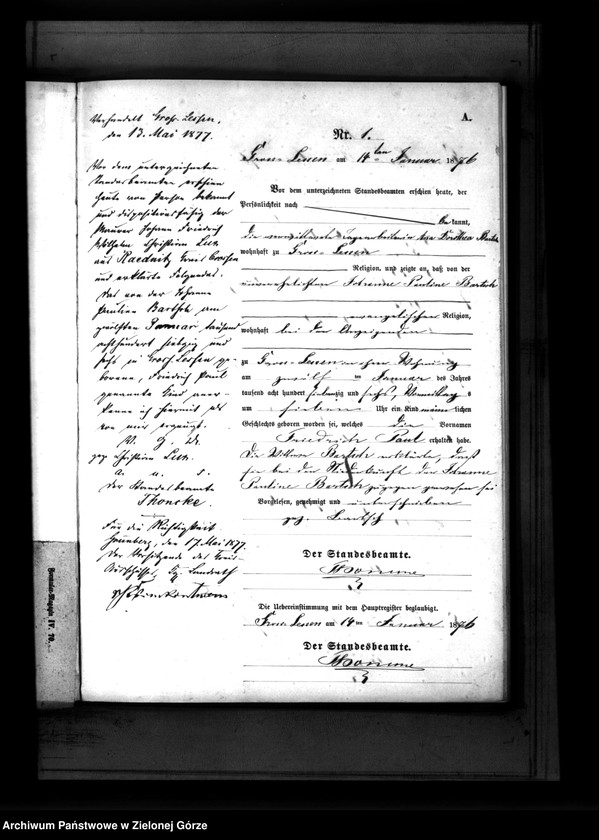 Verhandelt Groß-Lessen,
den 13. Mai 1877.
Vor dem unterzeichneten
Standesbeamten erschien
heute von Person bekannt
und dispositionsfähig der
Maurer Johann Friedrich
Wilhelm Christian
aus Kreis Crossen
und erklärte Folgendes:
Das von der Johanne
Pauline Bartsch am
zwölften Januar tausend
achthundert siebzig und
sechs zu Groß-Lessen ge-
borene, Friedrich Paul
genannte Kind aner-
kenne ich hiermit als
von mir erzeugt.
V. G. U.
gez. Christian
a. u. s.
Der Standesbeamte
Thoncke.
Für die Richtigkeit
Grünberg, den 17. Mai 1877.
Der Vorsitzende des Kreis-
Ausschusses, Kgl. Landrath
A.
Nr. 1.
Gross-Lessen am 14ten Januar 1876
Vor dem unterzeichneten Standesbeamten erschien heute, der
Persönlichkeit nach
bekannt,
die verwittwete Dorothea
wohnhaft zu Gross-Lessen
Religion, und zeigte an, daß von der
unverehelichten Johanne Pauline Bartsch
evangelischer Religion,
wohnhaft bei der Anzeigenden
zu Gross-Lessen in ihrer Wohnung
am zwölf ten Januar des Jahres
tausend acht hundert siebenzig und sechs, Vormittags
um sieben Uhr ein Kind männlichen
Geschlechts geboren worden sei, welches die Vornamen
Friedrich Paul erhalten habe.
Die Wittwe Bartsch erklärte, daß
sie bei der Niederkunft der Johanne
Pauline Bartsch zugegen gewesen sei
Vorgelesen, genehmigt und unterschrieben
gez.
Der Standesbeamte.
Die Uebereinstimmung mit dem Hauptregister beglaubigt.
Gross-Lessen am 14ten Januar 1876
Der Standesbeamte.
Archiwum Państwowe w Zielonej Górze